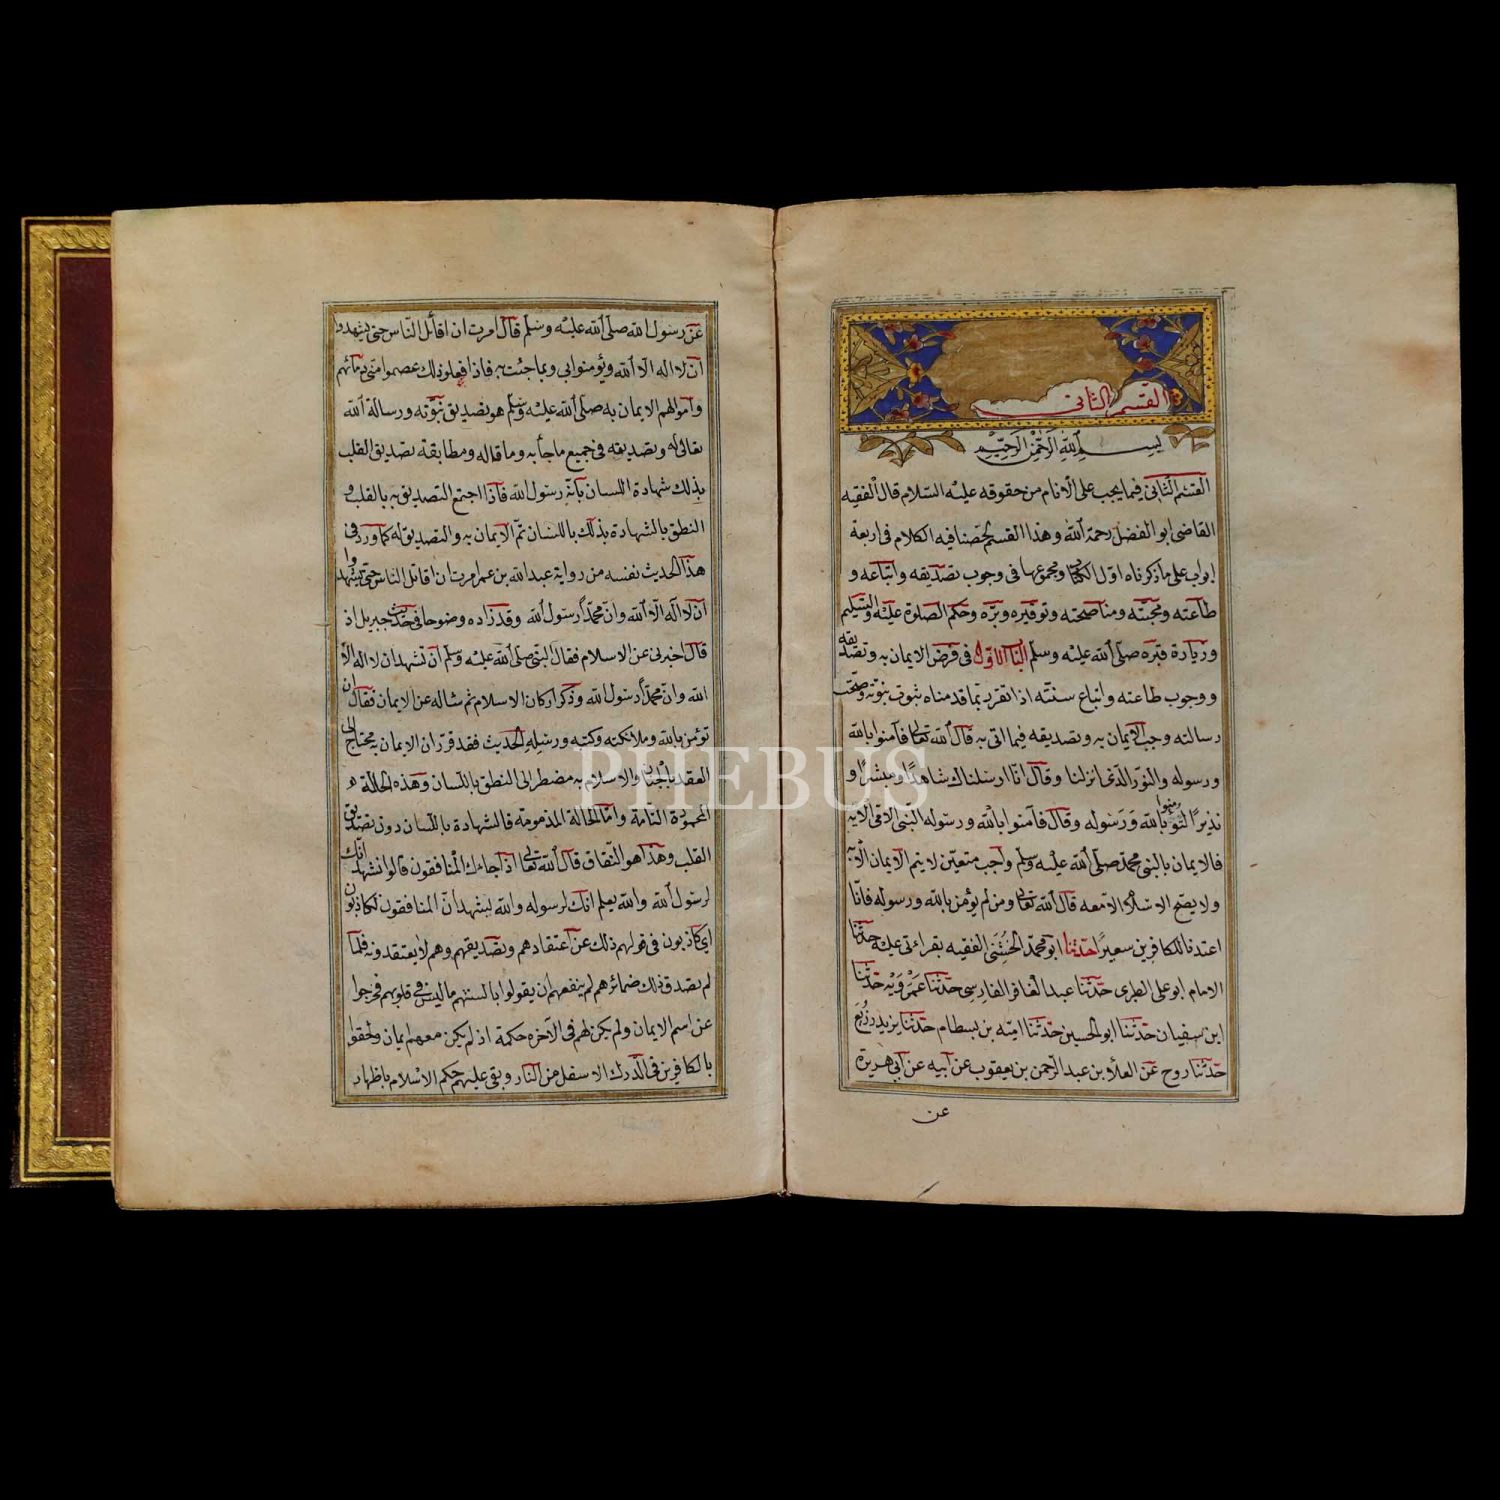 القسم الثانى
بسم الله الرحمن الرحيم
القسم الثانى فيما يجب على الانام من حقوقه عليه السلام قال الفقيه
القاضى ابو الفضل رحمه الله وهذا القسم لخصنا فيه الكلام فى اربعة
ابواب على ما ذكرناه اول الكتاب ومجموعها فى وجوب تصديقه واتباعه و
طاعته ومحبته ومناصحته وتوقيره وبره وحكم الصلوة عليه والتسليم
وزيارة قبره صلى الله عليه وسلم الباب الاول فى فرض الايمان به وتصديقه
ووجوب طاعته واتباع سنته اذا تقرر بما قدمناه ثبوت نبوته وصحت
رسالته وجب الايمان به وتصديقه فيما اتى به قال الله تعالى فآمنوا بالله
ورسوله والنور الذى انزلنا وقال انا ارسلناك شاهدا ومبشرا و
نذيرا لتؤمنوا بالله ورسوله وقال فآمنوا بالله ورسوله النبى الامى الايه
فالايمان بالنبى محمد صلى الله عليه وسلم واجب متعين لا يتم الايمان الا به
ولا يصح الاسلام الا معه قال الله تعالى ومن لم يؤمن بالله ورسوله فانا
اعتدنا للكافرين سعيرا حدثنا ابو محمد الخشنى الفقيه بقراءتى عليه حدثنا
الامام ابو على الطبرى حدثنا عبد الغافر الفارسى حدثنا عمرويه حدثنا
ابن سفيان حدثنا ابو الحسين حدثنا اميه بن بسطام حدثنا يزيد زريع
حدثنا روح عن العلا بن عبد الرحمن بن يعقوب عن ابيه عن ابى هريرة
عن
عن رسول الله صلى الله عليه وسلم قال امرت ان اقاتل الناس حتى يشهدوا
ان لا اله الا الله ويؤمنوا بى وبما جئت به فاذا فعلوا ذلك عصموا منى دمائهم
واموالهم الايمان به صلى الله عليه وسلم هو تصديق نبوته ورسالة الله
تعالى له وتصديقه فى جميع ما جأ به وما قاله ومطابقة تصديق القلب
بذلك شهادة اللسان بانه رسول الله فاذا اجتمع التصديق به بالقلب و
النطق بالشهادة بذلك باللسان تم الايمان به والتصديق له كما ورد فى
هذا الحديث نفسه من رواية عبد الله بن عمر امرت ان اقاتل الناس حتى يشهدوا
ان لا اله الا الله وان محمدا رسول الله وقد زاده وضوحا فى حديث جبريل اذ
قال اخبرنى عن الاسلام فقال النبى صلى الله عليه وسلم ان تشهد ان لا اله الا
الله وان محمدا رسول الله وذكر اركان الاسلام ثم سأله عن الايمان فقال ان
تؤمن بالله وملائكته وكتبه ورسله الحديث فقد قرر ان الايمان به محتاج الى
العقد بالجنان والاسلام به مضطر الى النطق باللسان وهذه الحالة
المحمودة التامة واما الحالة المذمومة فالشهادة باللسان دون تصديق
القلب وهذا هو النفاق قال الله تعالى اذا جاءك المنافقون قالوا نشهد انك
لرسول الله والله يعلم انك لرسوله والله يشهد ان المنافقون لكاذبون
اى كاذبون فى قولهم ذلك عن اعتقادهم وتصديقهم وهم لا يعتقدونه فلما
لم تصدق ذلك ضمائرهم لم ينفعهم ان يقولوا بالسنتهم ما ليس فى قلوبهم فخرجوا
عن اسم الايمان ولم يكن لهم فى الآخرة حكمة اذ لم يكن معهم ايمان ولحقوا
بالكافرين فى الدرك الاسفل من النار وبقى عليهم حكم الاسلام باظهار
PHEBUS